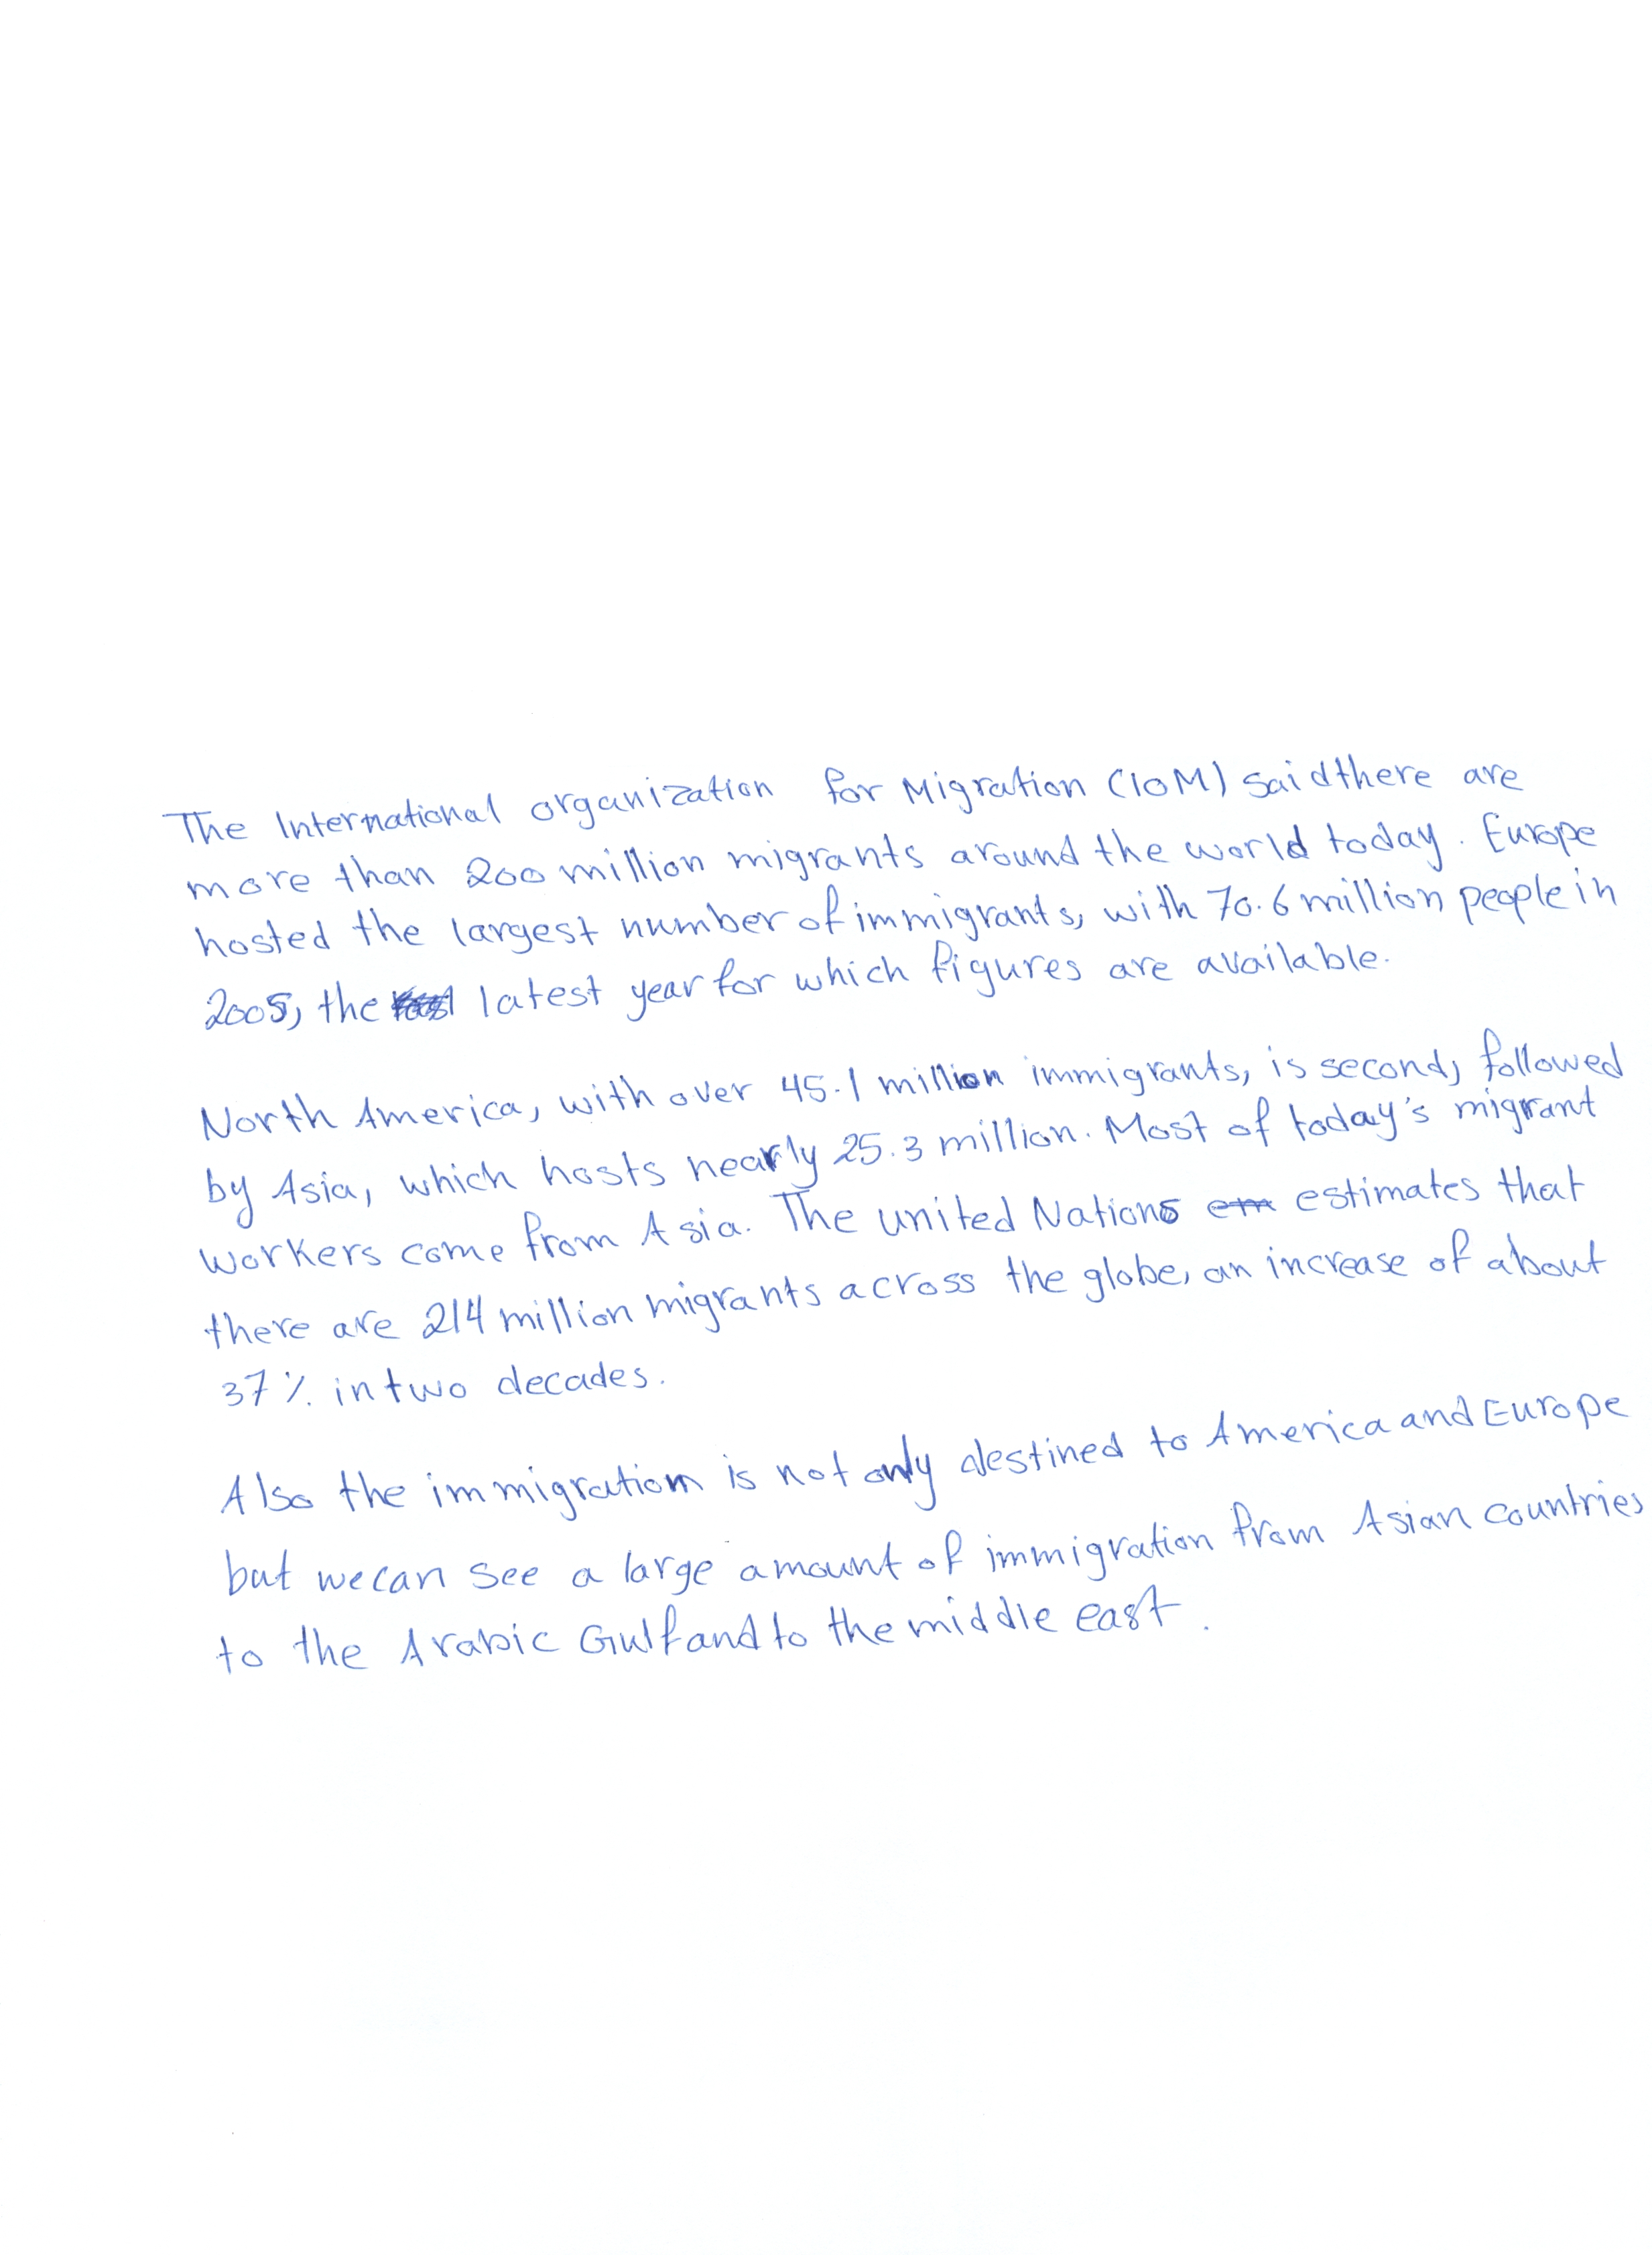 The International organization for Migration (IOM) said there are
more than 200 million migrants around the world today. Europe
hosted the largest number of immigrants, with 70.6 million people in
2005, the latest year for which figures are available.
North America, with over 45.1 million immigrants, is second, followed
by Asia, which hosts nearly 25.3 million. Most of today's migrant
workers come from Asia. The united Nations estimates that
there are 214 million migrants across the globe, an increase of about
37% in two decades.
Also the immigration is not only destined to America and Europe
but we can see a large amount of immigration from Asian countries
to the Arabic Gulf and to the middle east.